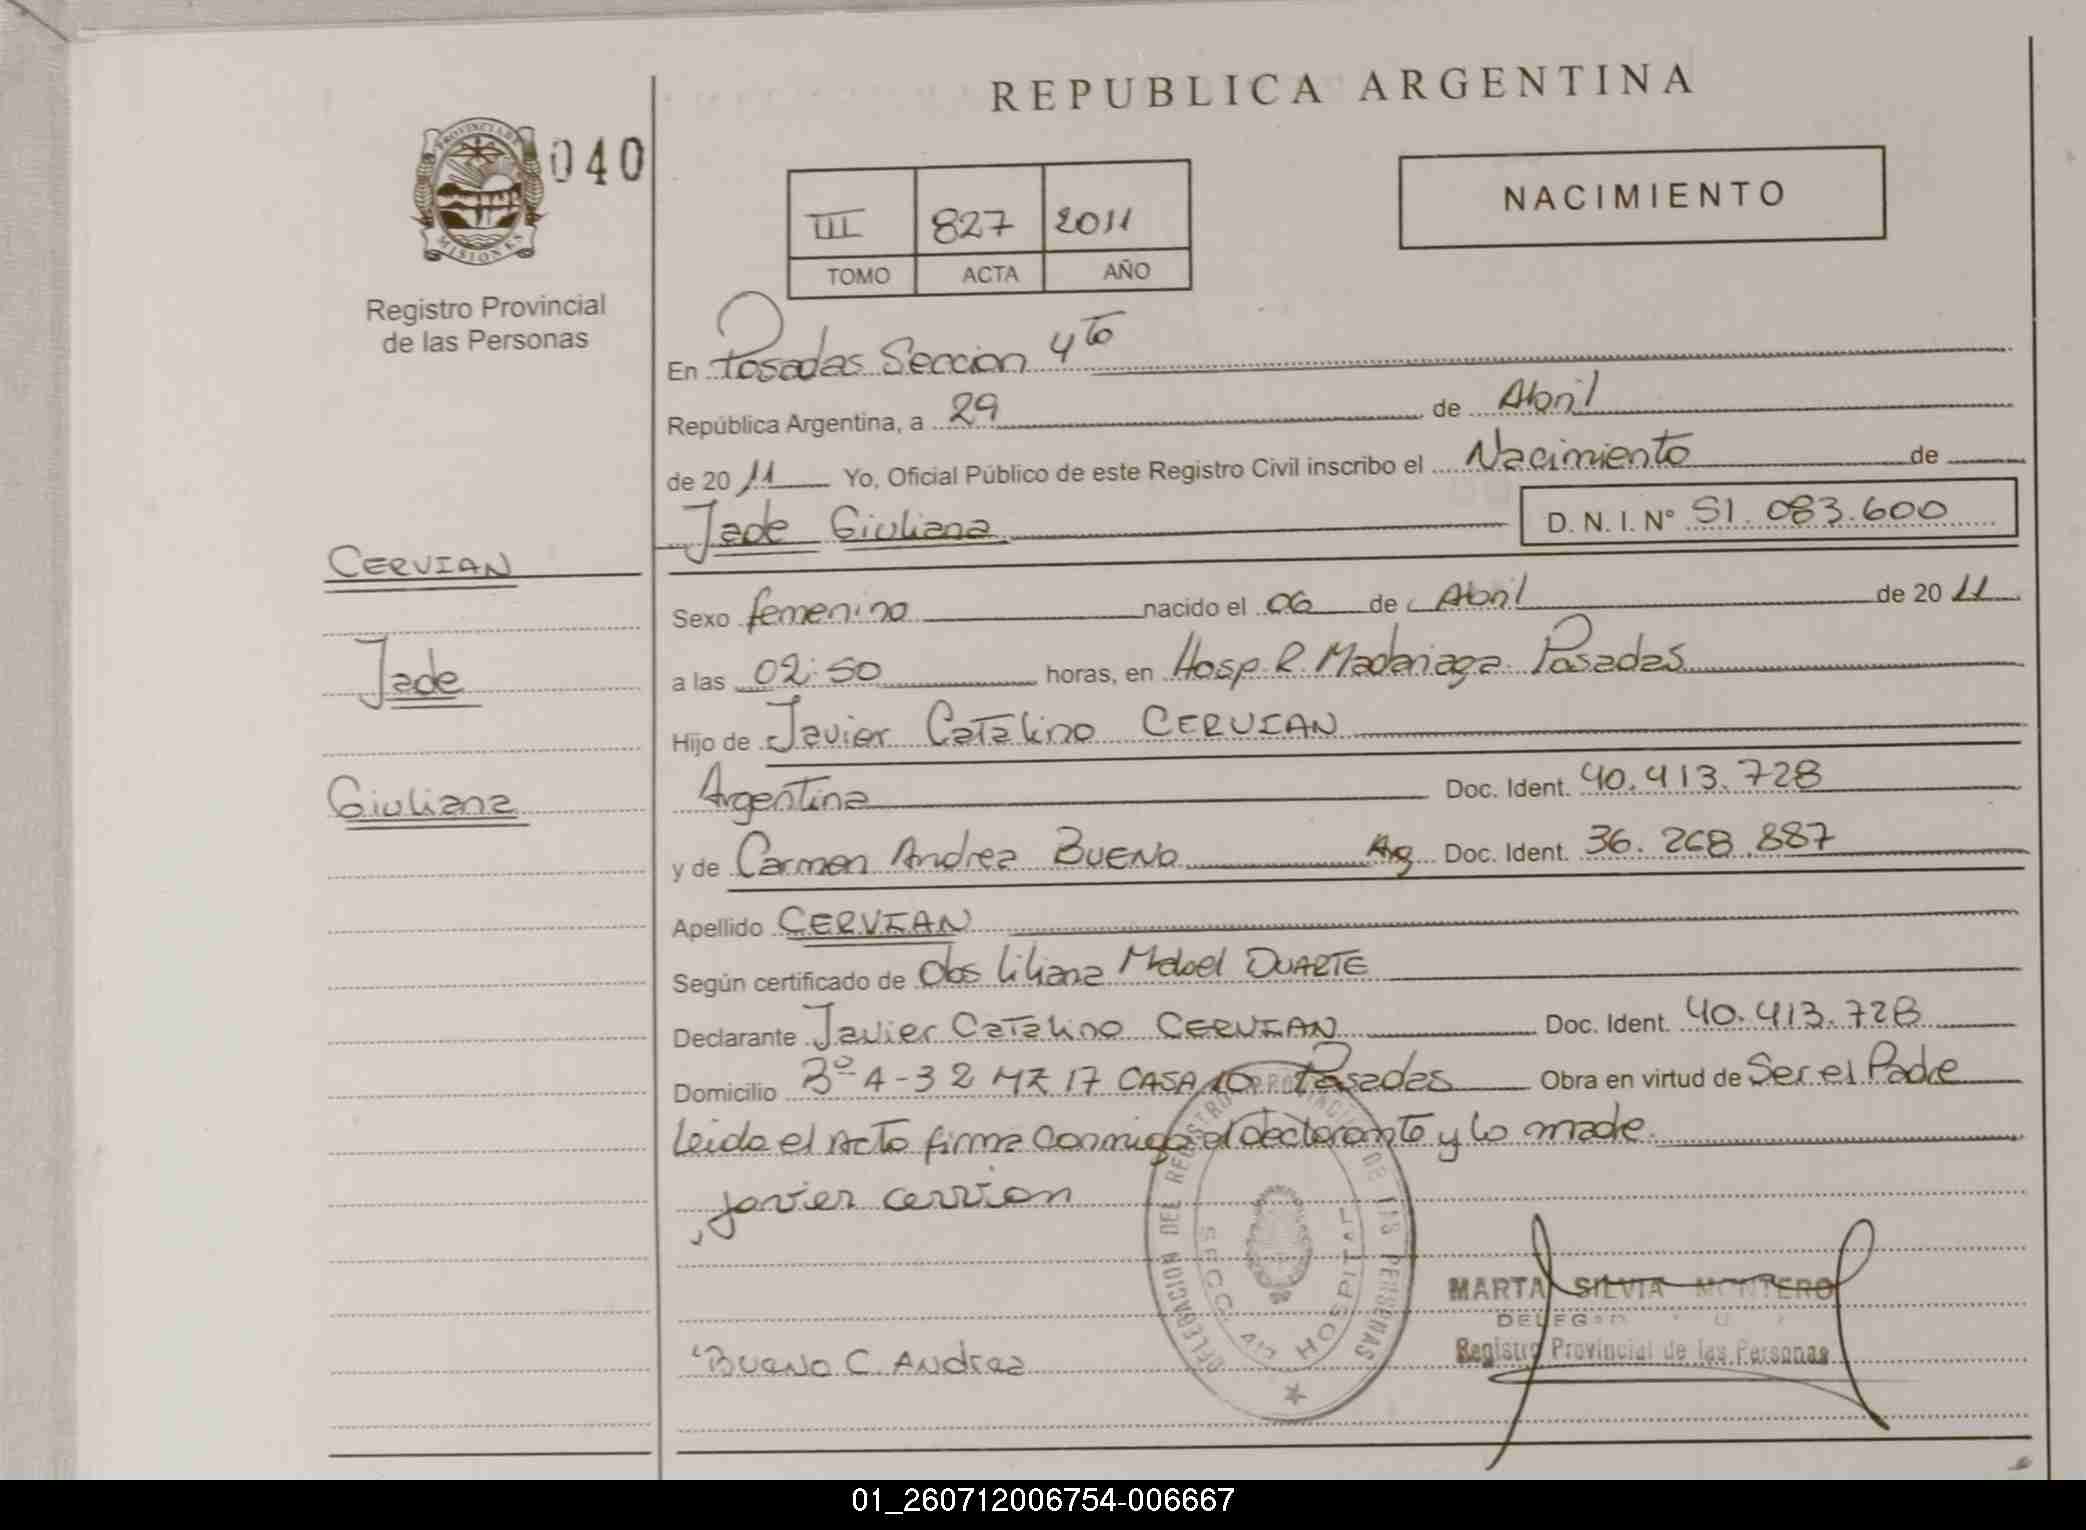 REPUBLICA ARGENTINA
PROVINCIA DE MISIONES
040
Registro Provincial
de las Personas
III 827 2011
TOMO ACTA AÑO
NACIMIENTO
En Posadas Seccion 4to
República Argentina, a 29 de Abril
de 2011 Yo, Oficial Público de este Registro Civil inscribo el Nacimiento de
Jade Giuliana D. N. I. Nº 51.083.600
CERVIAN
Jade
Giuliana
Sexo femenino nacido el 06 de Abril de 2011
a las 02:50 horas, en Hosp. R. Madariaga Posadas
Hijo de Javier Catalino CERVIAN
Argentina Doc. Ident. 40.413.728
y de Carmen Andrea BUENO Arg Doc. Ident. 36.268.887
Apellido CERVIAN
Según certificado de Obs Liliana Mabel DUARTE
Declarante Javier Catalino CERVIAN Doc. Ident. 40.413.728
Domicilio Bº A-3 2 MZ 17 CASA 16 Posadas Obra en virtud de Ser el Padre
Leida el Acta firma conmigo el declarante y la madre.
Javier cervian
DELEGACION DEL REGISTRO PROVINCIAL DE LAS PERSONAS
SECC. 4ta HOSPITAL
MARTA SILVIA MONTERO
Registro Provincial de las Personas
Bueno C. Andrea
01_260712006754-006667